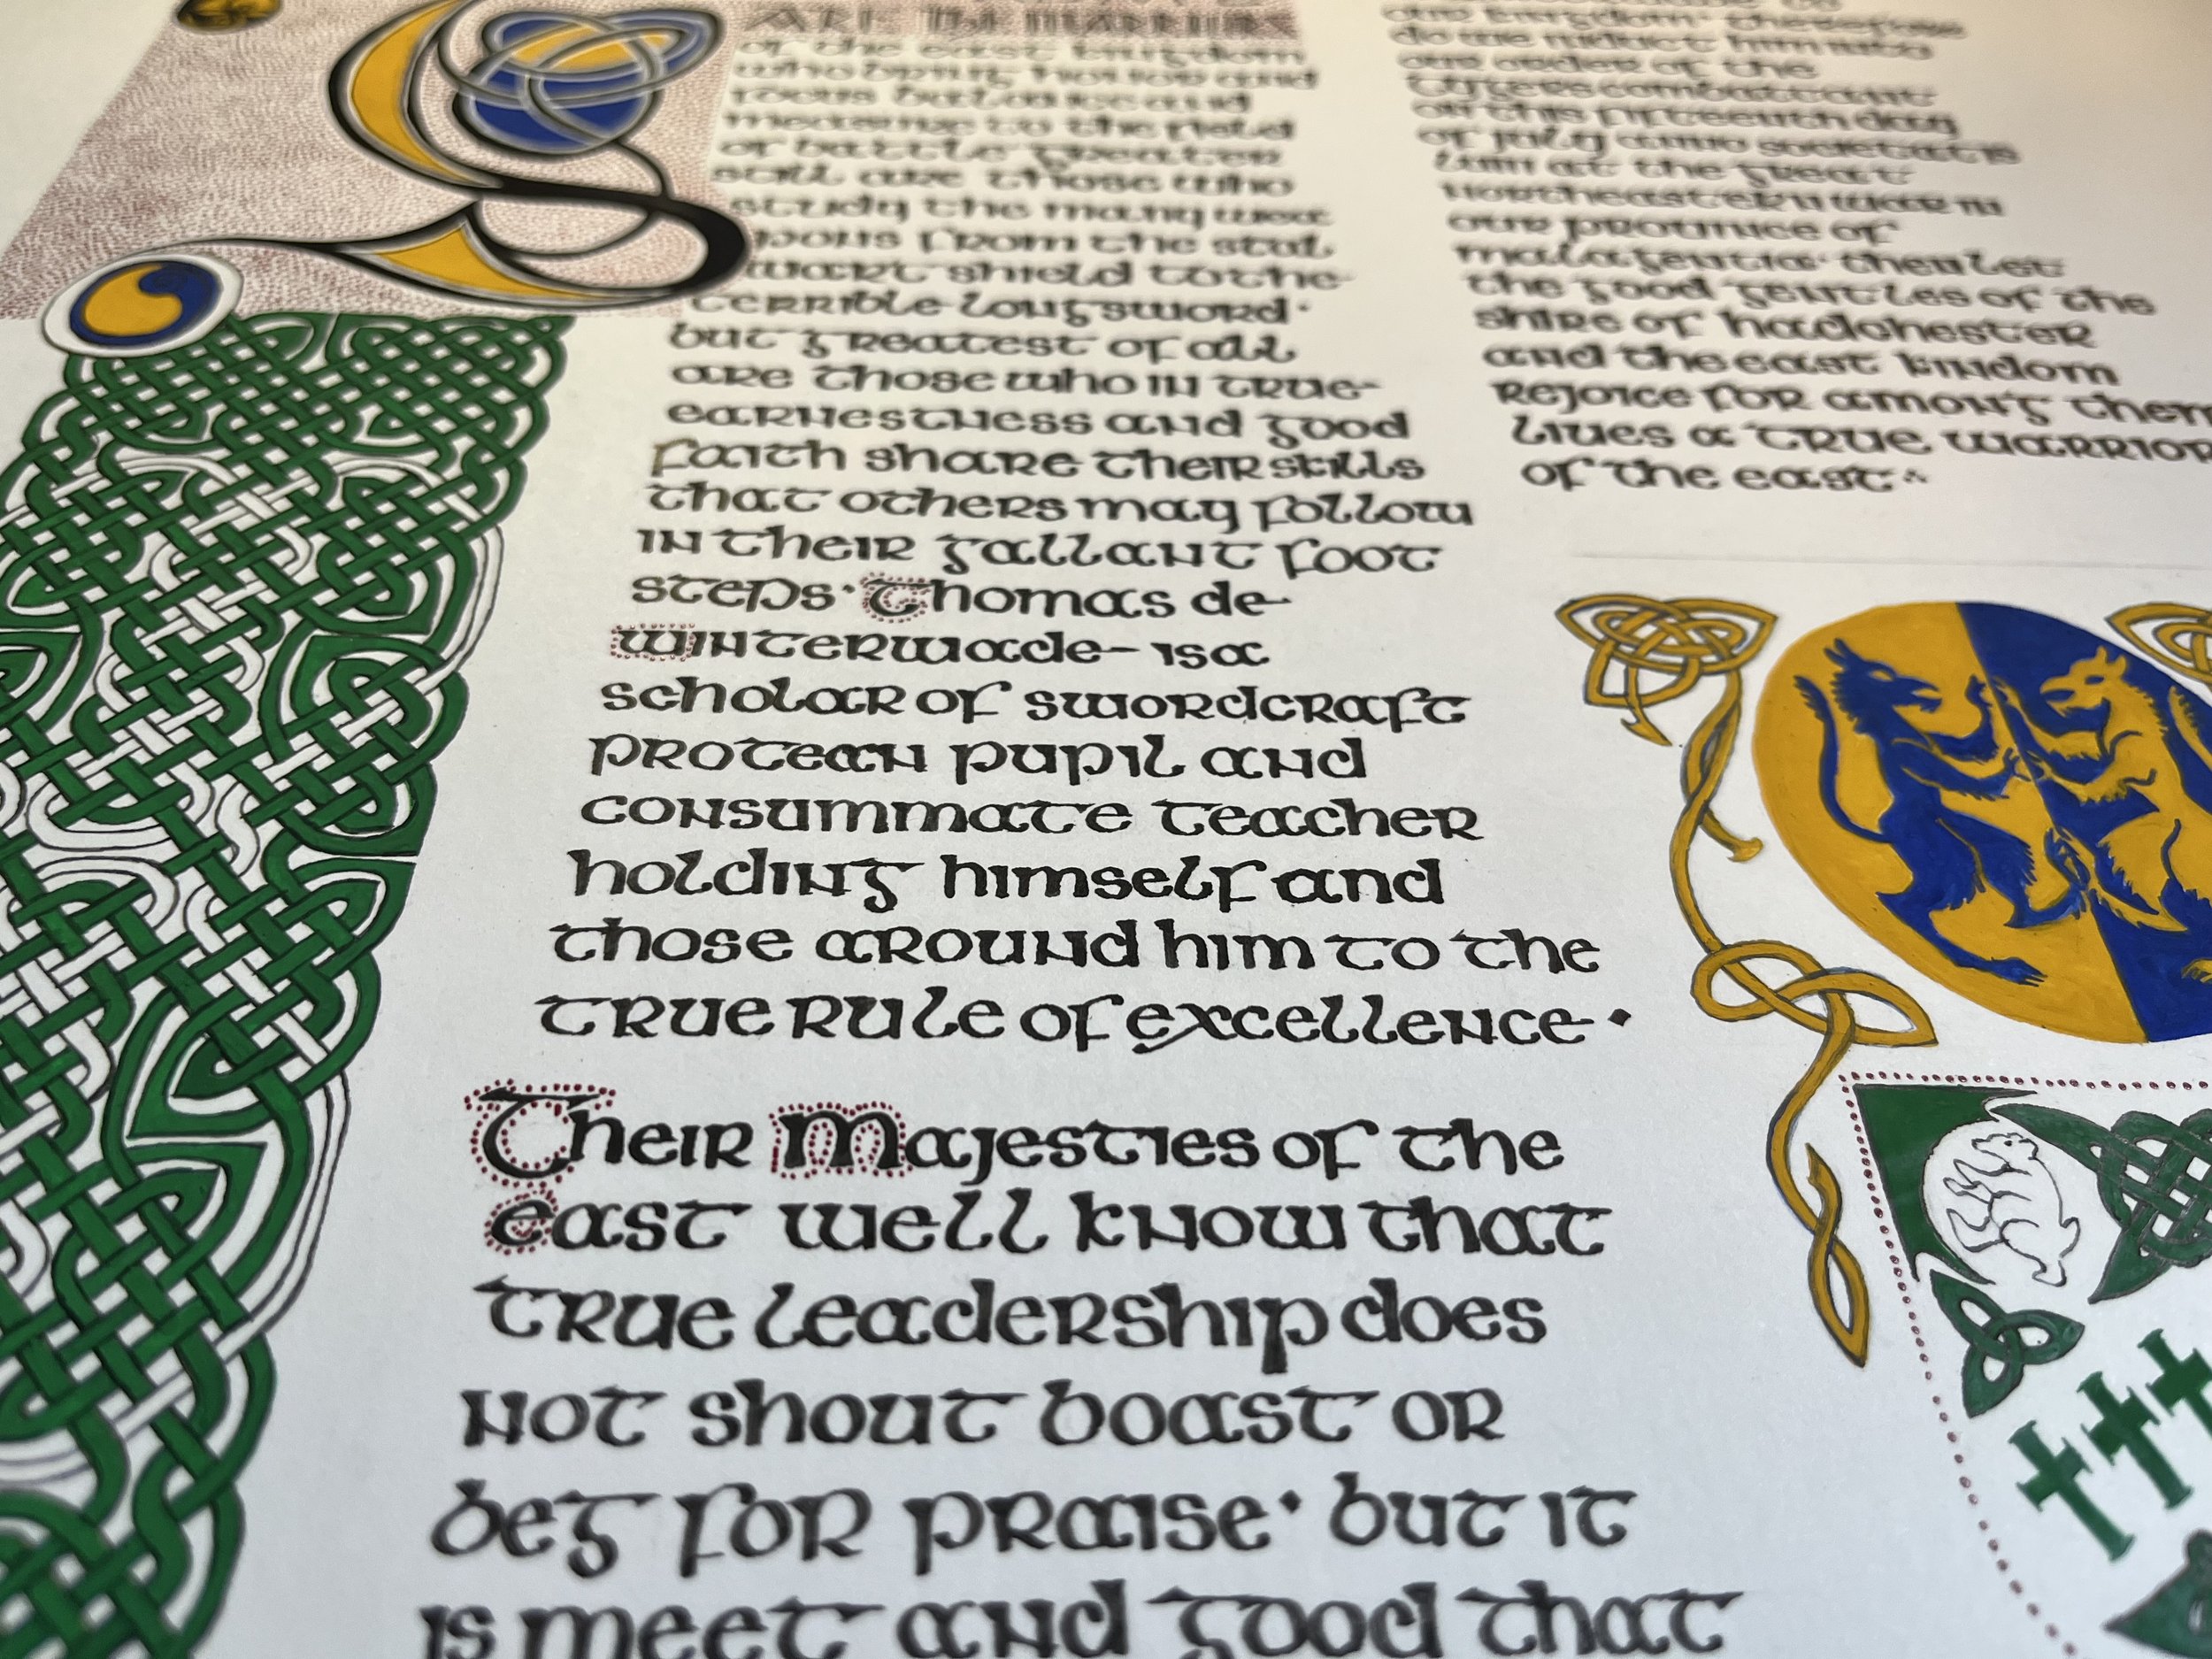 ARE the warriors
of the east kingdom
who bring honor and
focus balance and
measure to the field
of battle· greater
still are those who
study the many wea
pons from the stal
wart shield to the
terrible longsword·
but greatest of all
are those who in true
earnestness and good
faith share their skills
that others may follow
in their gallant foot
steps· Thomas de
Winterwade- is a
scholar of swordcraft
protean pupil and
consummate teacher
holding himself and
those around him to the
true rule of excellence·
Their Majesties of the
east well know that
true leadership does
not shout boast or
beg for praise· but it
is meet and good that
our kingdom· therefore
do we induct him into
our order of the
tygers combattant
on this fifteenth day
of july anno societatis
at the great
northeastern war in
our province of
malagentia· then let
the good gentles of the
shire of hadchester
and the east kindom
rejoice for among them
lives a true warrior
of the east